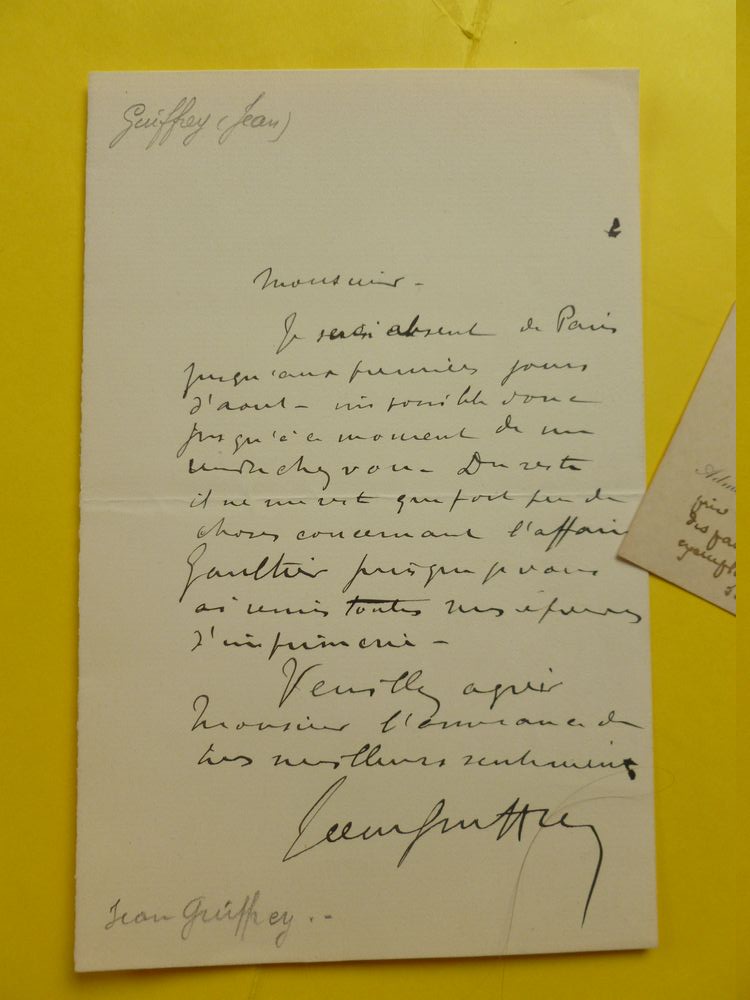 Guiffrey (Jean)
Monsieur -
Je serai absent de Paris
jusqu'aux premiers jours
d'aout - impossible donc
jusqu'à ce moment de me
rendre chez vous - Du reste
il ne me reste que fort peu de
choses concernant l'affaire
Gaultier puisque je vous
ai remis toutes mes épreuves
d'imprimerie -
Veuillez agréer
Monsieur l'assurance de
mes meilleurs sentiments
Jean Guiffrey
Jean Guiffrey . -